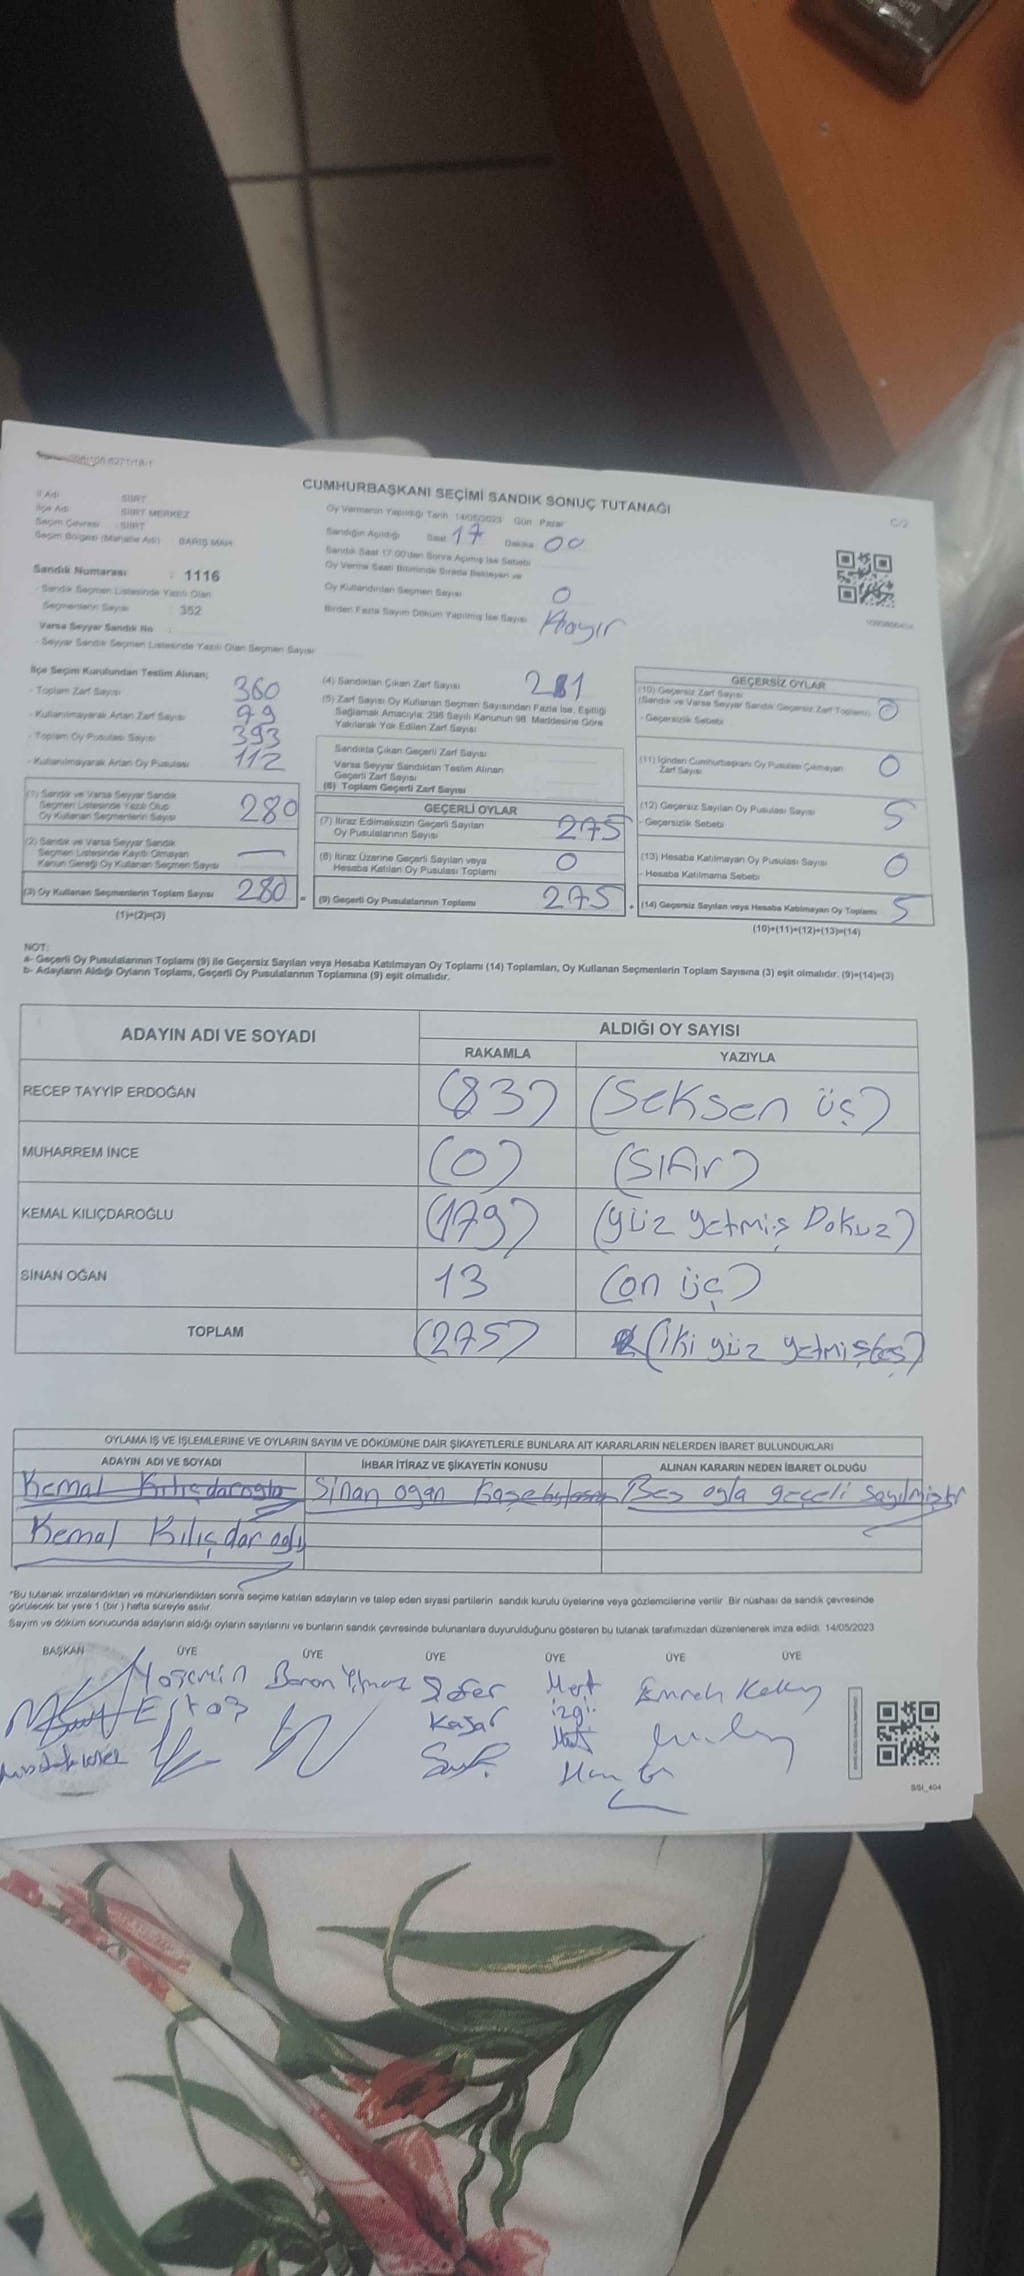 CUMHURBAŞKANI SEÇİMİ SANDIK SONUÇ TUTANAĞI
C/2
İl Adı : SİİRT
İlçe Adı : SİİRT MERKEZ
Seçim Çevresi : SİİRT
Seçim Bölgesi (Mahalle Adı) : BARIŞ MAH.
Sandık Numarası : 1116
- Sandık Seçmen Listesinde Yazılı Olan
Seçmenlerin Sayısı : 352
Varsa Seyyar Sandık No
- Seyyar Sandık Seçmen Listesinde Yazılı Olan Seçmen Sayısı :
Oy Vermenin Yapıldığı Tarih 14/05/2023 Gün Pazar
Sandığın Açıldığı Saat 17 Dakika 00
Sandık Saat 17:00'den Sonra Açılmış İse Sebebi
Oy Verme Saati Bitiminde Sırada Bekleyen ve
Oy Kullandırılan Seçmen Sayısı 0
Birden Fazla Sayım Döküm Yapılmış İse Sayısı Hayır
İlçe Seçim Kurulundan Teslim Alınan;
- Toplam Zarf Sayısı 360
- Kullanılmayarak Artan Zarf Sayısı 79
- Toplam Oy Pusulası Sayısı 393
- Kullanılmayarak Artan Oy Pusulası 112
(1) Sandık ve Varsa Seyyar Sandık
Seçmen Listesinde Yazılı Olup
Oy Kullanan Seçmenlerin Sayısı 280
(2) Sandık ve Varsa Seyyar Sandık
Seçmen Listesinde Kayıtlı Olmayan
Kanun Gereği Oy Kullanan Seçmen Sayısı —
(3) Oy Kullanan Seçmenlerin Toplam Sayısı 280
(1)+(2)=(3)
(4) Sandıktan Çıkan Zarf Sayısı 281
(5) Zarf Sayısı Oy Kullanan Seçmen Sayısından Fazla İse, Eşitliği
Sağlamak Amacıyla; 298 Sayılı Kanunun 98. Maddesine Göre
Yakılarak Yok Edilen Zarf Sayısı
Sandıkta Çıkan Geçerli Zarf Sayısı
Varsa Seyyar Sandıktan Teslim Alınan
Geçerli Zarf Sayısı
(6) Toplam Geçerli Zarf Sayısı
GEÇERLİ OYLAR
(7) İtiraz Edilmeksizin Geçerli Sayılan
Oy Pusulalarının Sayısı 275
(8) İtiraz Üzerine Geçerli Sayılan veya
Hesaba Katılan Oy Pusulası Toplamı 0
(9) Geçerli Oy Pusulalarının Toplamı 275
GEÇERSİZ OYLAR
(10) Geçersiz Zarf Sayısı
(Sandık ve Varsa Seyyar Sandık Geçersiz Zarf Toplamı) 0
- Geçersizlik Sebebi
(11) İçinden Cumhurbaşkanı Oy Pusulası Çıkmayan
Zarf Sayısı 0
(12) Geçersiz Sayılan Oy Pusulası Sayısı 5
- Geçersizlik Sebebi
(13) Hesaba Katılmayan Oy Pusulası Sayısı 0
- Hesaba Katılmama Sebebi
(14) Geçersiz Sayılan veya Hesaba Katılmayan Oy Toplamı 5
(10)+(11)+(12)+(13)=(14)
NOT:
a- Geçerli Oy Pusulalarının Toplamı (9) ile Geçersiz Sayılan veya Hesaba Katılmayan Oy Toplamı (14) Toplamları, Oy Kullanan Seçmenlerin Toplam Sayısına (3) eşit olmalıdır. (9)+(14)=(3)
b- Adayların Aldığı Oyların Toplamı, Geçerli Oy Pusulalarının Toplamına (9) eşit olmalıdır.
ADAYIN ADI VE SOYADI
ALDIĞI OY SAYISI
RAKAMLA YAZIYLA
RECEP TAYYİP ERDOĞAN (83) (Seksen üç)
MUHARREM İNCE (0) (Sıfır)
KEMAL KILIÇDAROĞLU (179) (yüz yetmiş Dokuz)
SİNAN OĞAN 13 (on üç)
TOPLAM (275) (iki yüz yetmiş beş)
OYLAMA İŞ VE İŞLEMLERİNE VE OYLARIN SAYIM VE DÖKÜMÜNE DAİR ŞİKAYETLERLE BUNLARA AİT KARARLARIN NELERDEN İBARET BULUNDUKLARI
ADAYIN ADI VE SOYADI İHBAR İTİRAZ VE ŞİKAYETİN KONUSU ALINAN KARARIN NEDEN İBARET OLDUĞU
Kemal Kılıçdaroğlu Sinan ogan Beş oyla geçeli sayılmıştır
Kemal Kılıçdaroğlu
*Bu tutanak imzalandıktan ve mühürlendikten sonra seçime katılan adayların ve talep eden siyasi partilerin sandık kurulu üyelerine veya gözlemcilerine verilir. Bir nüshası da sandık çevresinde
görülecek bir yere 1 (bir) hafta süreyle asılır.
Sayım ve döküm sonucunda adayların aldığı oyların sayılarını ve bunların sandık çevresinde bulunanlara duyurulduğunu gösteren bu tutanak tarafımızdan düzenlenerek imza edildi. 14/05/2023
BAŞKAN ÜYE ÜYE ÜYE ÜYE ÜYE ÜYE
Yasemin Baran Yılmaz Sefer Mert Emreh
Kaşar
SSI_404